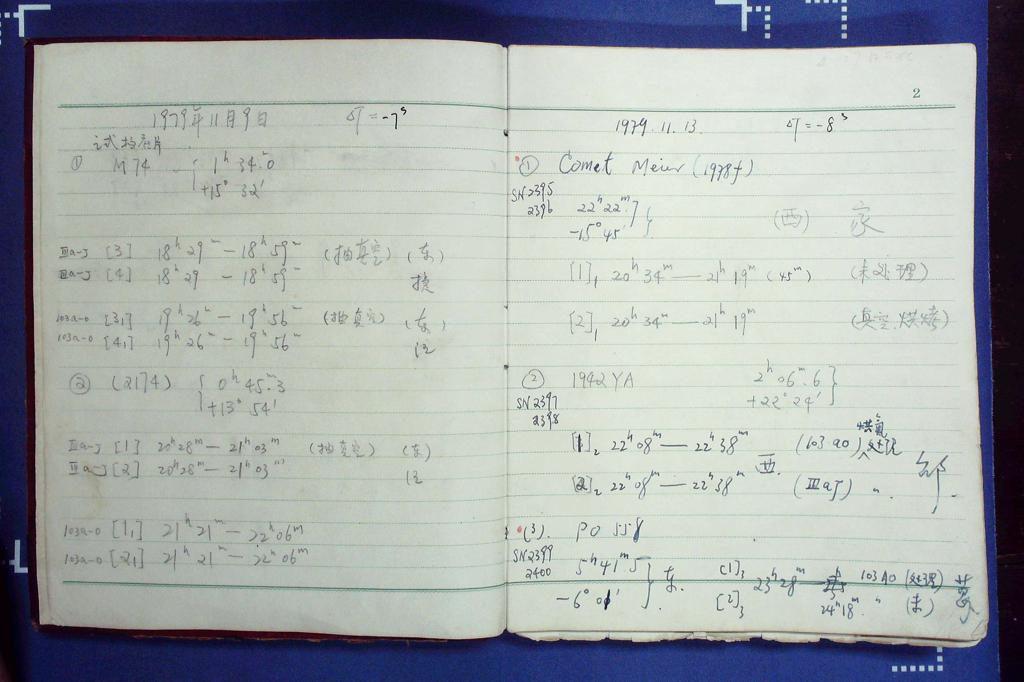 1979年11月9日 δT=-7ˢ
试拍底片
① M74 { 1ʰ 34ᵐ.0
+15° 32′
Ⅲa-J [3] 18ʰ 29ᵐ — 18ʰ 59ᵐ (抽真空) (东)
Ⅲa-J [4] 18ʰ 29 — 18ʰ 59ᵐ
103a-0 [3₁] 19ʰ 26ᵐ — 19ʰ 56ᵐ (抽真空) (东)
103a-0 [4₁] 19ʰ 26ᵐ — 19ʰ 56ᵐ 江
② (2174) { 0ʰ 45ᵐ.3
+13° 54′
Ⅲa-J [1] 20ʰ 28ᵐ — 21ʰ 03ᵐ (抽真空) (东)
Ⅲa-J [2] 20ʰ 28ᵐ — 21ʰ 03ᵐ 江
103a-0 [1₁] 21ʰ 21ᵐ — 22ʰ 06ᵐ
103a-0 [2₁] 21ʰ 21ᵐ — 22ʰ 06ᵐ
2
1979.11.13. δT=-8ˢ
① Comet Meier (1978f)
SN2395
2396 22ʰ 22ᵐ.7 }
-15° 45′ (西) 家
[1]₁ 20ʰ 34ᵐ — 21ʰ 19ᵐ (45ᵐ) (未处理)
[2]₁ 20ʰ 34ᵐ — 21ʰ 19ᵐ (真空.烘烤)
② 1942 YA 2ʰ 06ᵐ.6 }
+22° 24′
SN2397
2398
[1]₂ 22ʰ 08ᵐ — 22ʰ 38ᵐ (103aO) 烘氮处理
西.
[2]₂ 22ʰ 08ᵐ — 22ʰ 38ᵐ (ⅢaJ) 〃 邹.
(3). PO 558
SN2399
2400 5ʰ 41ᵐ.5 } 东. [1]₃ 23ʰ 28ᵐ — 103AO (处理)
-6° 01′ [2]₃ 24ʰ 18ᵐ. 〃 (未)